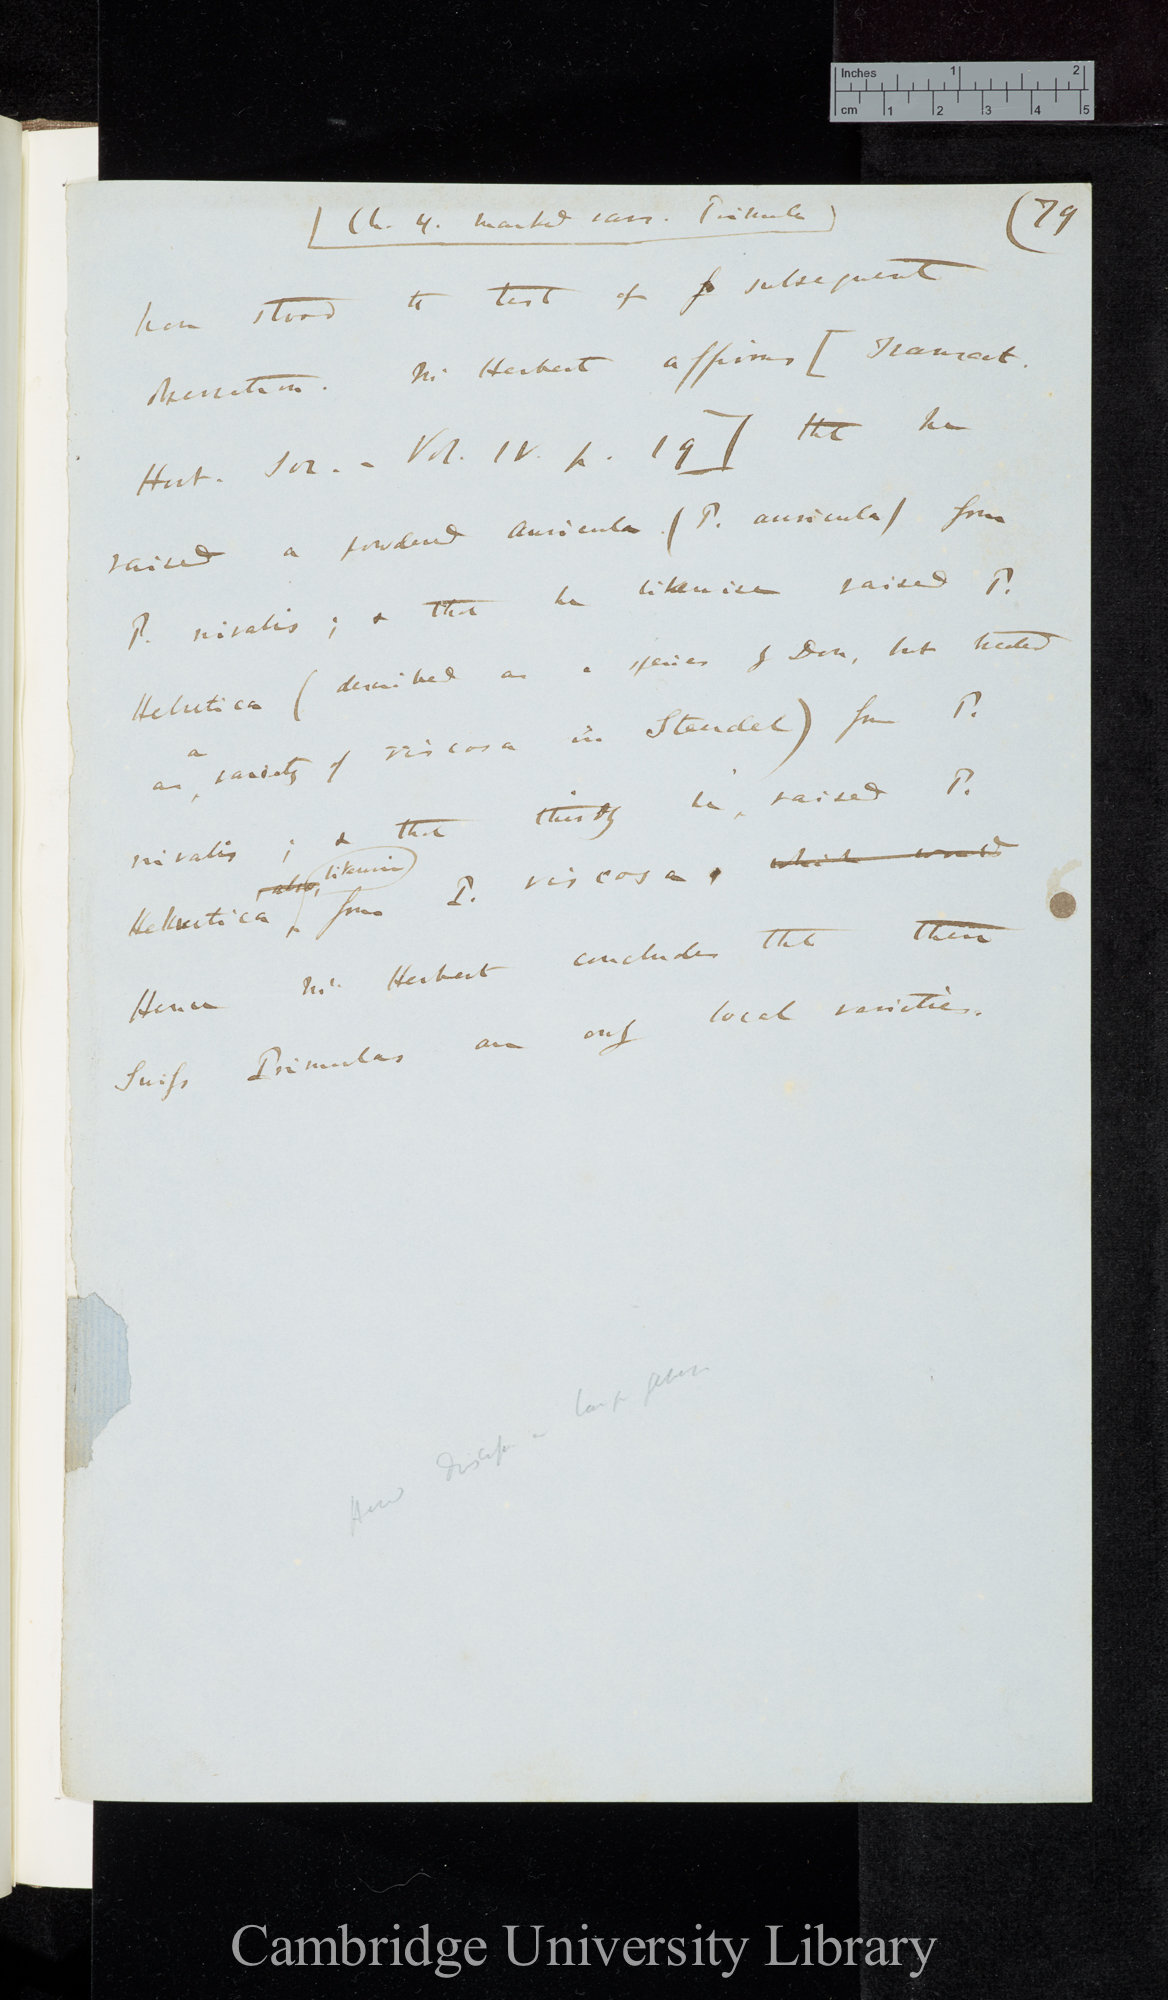 Inches 1 2
cm 1 2 3 4 5
[Ch. 4. marked vars. Primula]
(79
have stood the test of subsequent
observation. Mr Herbert affirms [Transact.
Hort. Soc. - Vol. IV. p. 19] that he
raised a powdered auricula (P. auricula) from
P. nivalis; & that he likewise raised P.
Helvetica (described as a species by Don, but treated
a
as variety of viscosa in Steudel) from P.
nivalis; & that thirdly he raised P.
also, likewise
Helvetica from P. viscosa, which would
Hence Mr. Herbert concludes that these
Swiss Primulas are only local varieties.
large genera
Cambridge University Library